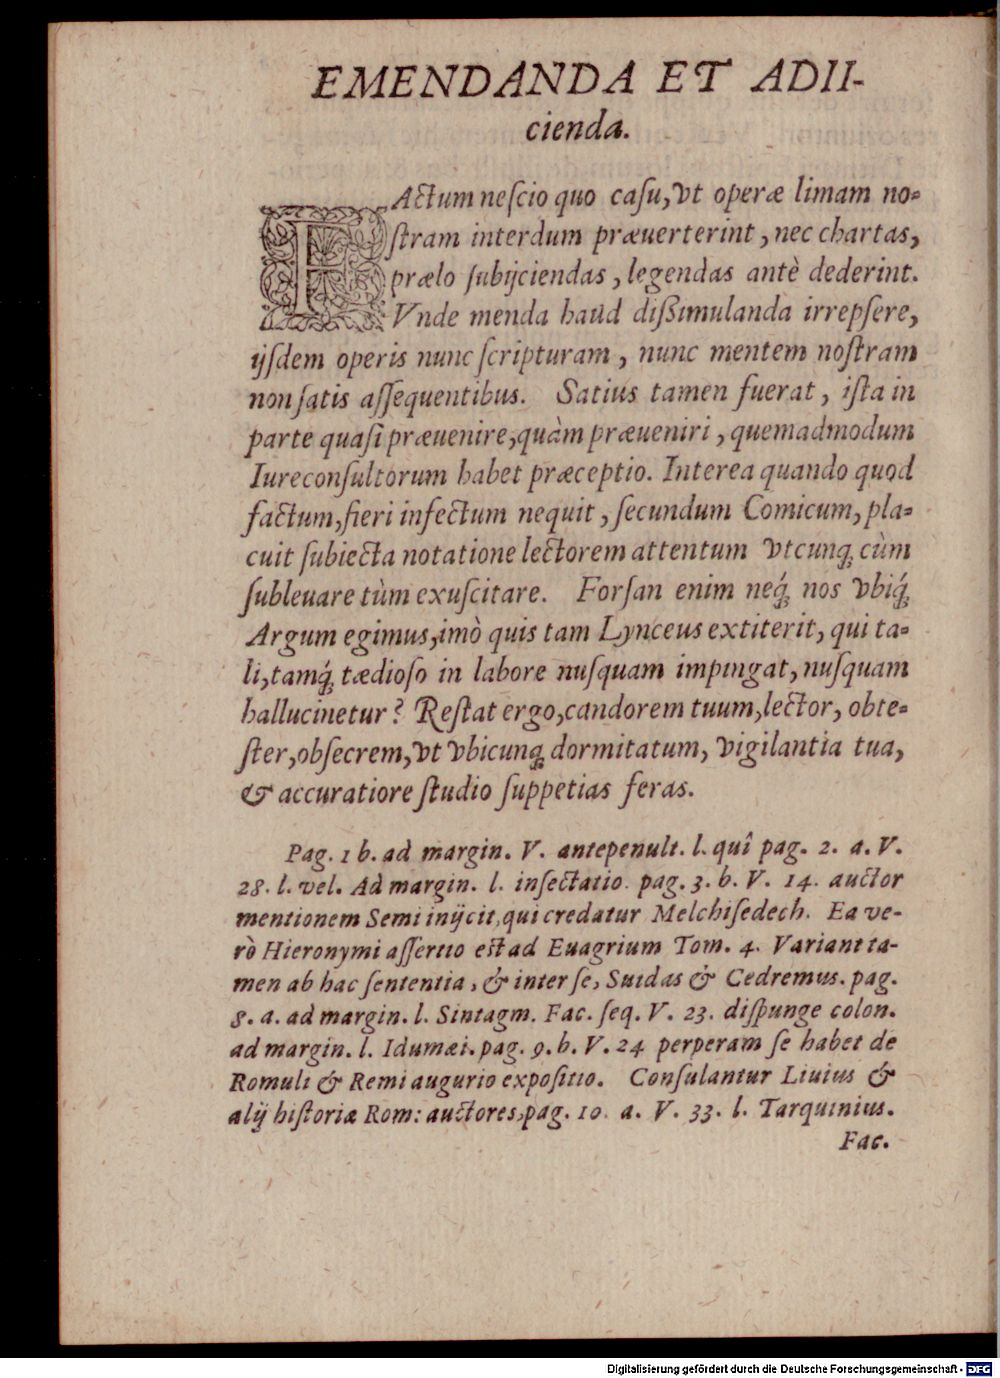 EMENDANDA ET ADII-
cienda.
FActum neſcio quo caſu, vt operæ limam no-
ſtram interdum præuerterint, nec chartas,
prælo ſubijciendas, legendas antè dederint.
Vnde menda haud diſſimulanda irrepſere,
ijſdem operis nunc ſcripturam, nunc mentem noſtram
non ſatis aſſequentibus. Satius tamen fuerat, iſta in
parte quaſi præuenire, quàm præueniri, quemadmodum
Iureconſultorum habet præceptio. Interea quando quod
factum, fieri infectum nequit, ſecundum Comicum, pla-
cuit ſubiecta notatione lectorem attentum vtcunq; cùm
ſubleuare tùm exuſcitare. Forſan enim neq́; nos vbiq́;
Argum egimus, imò quis tam Lynceus extiterit, qui ta-
li, tamq́; tædioſo in labore nuſquam impingat, nuſquam
hallucinetur? Reſtat ergo, candorem tuum, lector, obte-
ſter, obſecrem, vt vbicunq; dormitatum, vigilantia tua,
& accuratiore ſtudio ſuppetias feras.
Pag. 1 b. ad margin. V. antepenult. l. quî pag. 2. a. V.
28. l. vel. Ad margin. l. inſectatio. pag. 3. b. V. 14. auctor
mentionem Semi inijcit, qui credatur Melchiſedech. Ea ve-
rò Hieronymi aſſertio eſt ad Euagrium Tom. 4. Variant ta-
men ab hac ſententia, & inter ſe, Suidas & Cedremus. pag.
8. a. ad margin. l. Sintagm. Fac. ſeq. V. 23. diſpunge colon.
ad margin. l. Idumæi. pag. 9. b. V. 24 perperam ſe habet de
Romuli & Remi augurio expoſitio. Conſulantur Liuius &
alij hiſtoriæ Rom: auctores, pag. 10. a. V. 33. l. Tarquinius.
Fac.
Digitalisierung gefördert durch die Deutsche Forschungsgemeinschaft - DFG